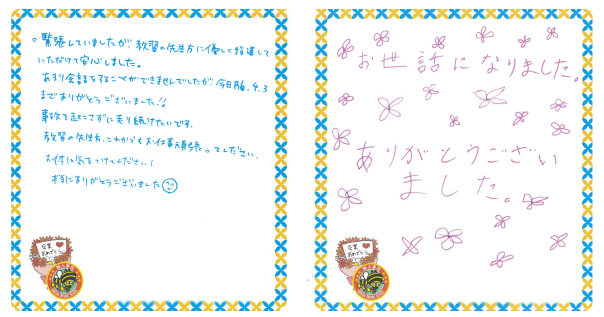 。緊張していましたが教習の先生方に優しく指導して
いただけて安心しました。
あまり会話をすることができませんでしたが、今日
までありがとうございました!!
事故を起こさずに走り続けたいです。
教習の先生方、これからもお仕事頑張ってください。
お体に気をつけてください!
本当にありがとうございました
卒業
おめでとう
お世話になりました。
ありがとうござい
ました。
卒業
おめでとう